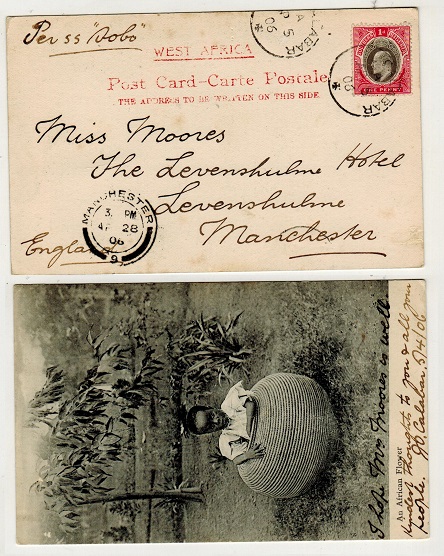 Per SS "Sobo"
WEST AFRICA
Post Card-Carte Postale
(THE ADDRESS TO BE WRITTEN ON THIS SIDE.
ABAR
06
BAR
06
1d
ONE PENNY
Miss Moores
The Levenshulme Hotel
Levenshulme
Manchester
England
MANCHESTER
3. PM
AP 28
06
9
An African Flower
I hope Mrs Moores is well
Kindest thoughts to you & all your
people. Calabar 5/4/06